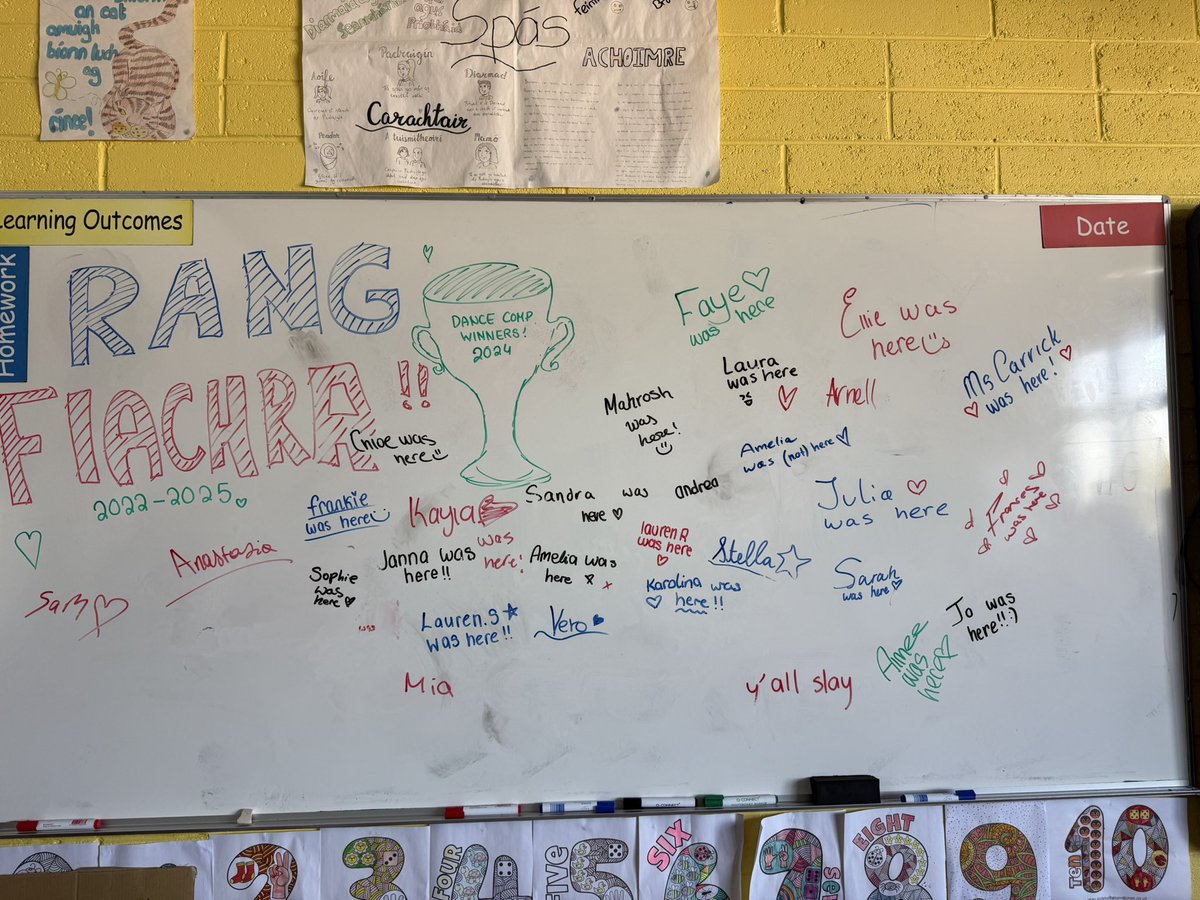 an cat
amuigh
bíonn luch
ag
rince!
Spás
ACHOIMRE
Padraigín
Aoife
Diarmad
Carachtair
Peadar
A tuismitheoirí
Mamó
Learning Outcomes
Date
Homework
RANG
FIACHRA!!
2022-2025
DANCE COMP
WINNERS!
2024
Faye
was here
Ellie was
here
Ms Carrick
was here!
Laura
was here
Arnell
Mahrosh
was
here!
Chloe was
here
Amelia
was (not) here
frankie
was here
Kayla
was
here!
Sandra was
here
andrea
Julia
was here
Frances
was here
Anastasia
Janna was
here!!
Amelia was
here x
lauren R
was here
Stella
Sophie
was
here
Karolina was
here!!
Sarah
was here
Sam
Lauren.S
was here!!
Vero
Jo was
here!!:)
Aimee
was
here
Mia
y'all slay
Q-CONNECT
FOUR
4
FIVE
5
SIX
6
7
EIGHT
8
9
Ten
10
2
3